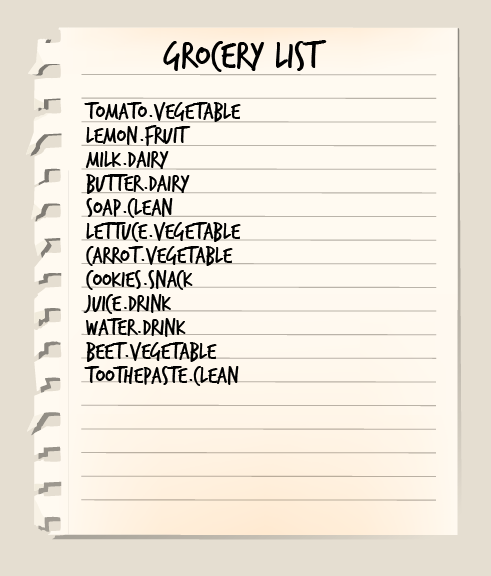 GROCERY LIST
TOMATO.VEGETABLE
LEMON.FRUIT
MILK.DAIRY
BUTTER.DAIRY
SOAP.CLEAN
LETTUCE.VEGETABLE
CARROT.VEGETABLE
COOKIES.SNACK
JUICE.DRINK
WATER.DRINK
BEET.VEGETABLE
TOOTHEPASTE.CLEAN